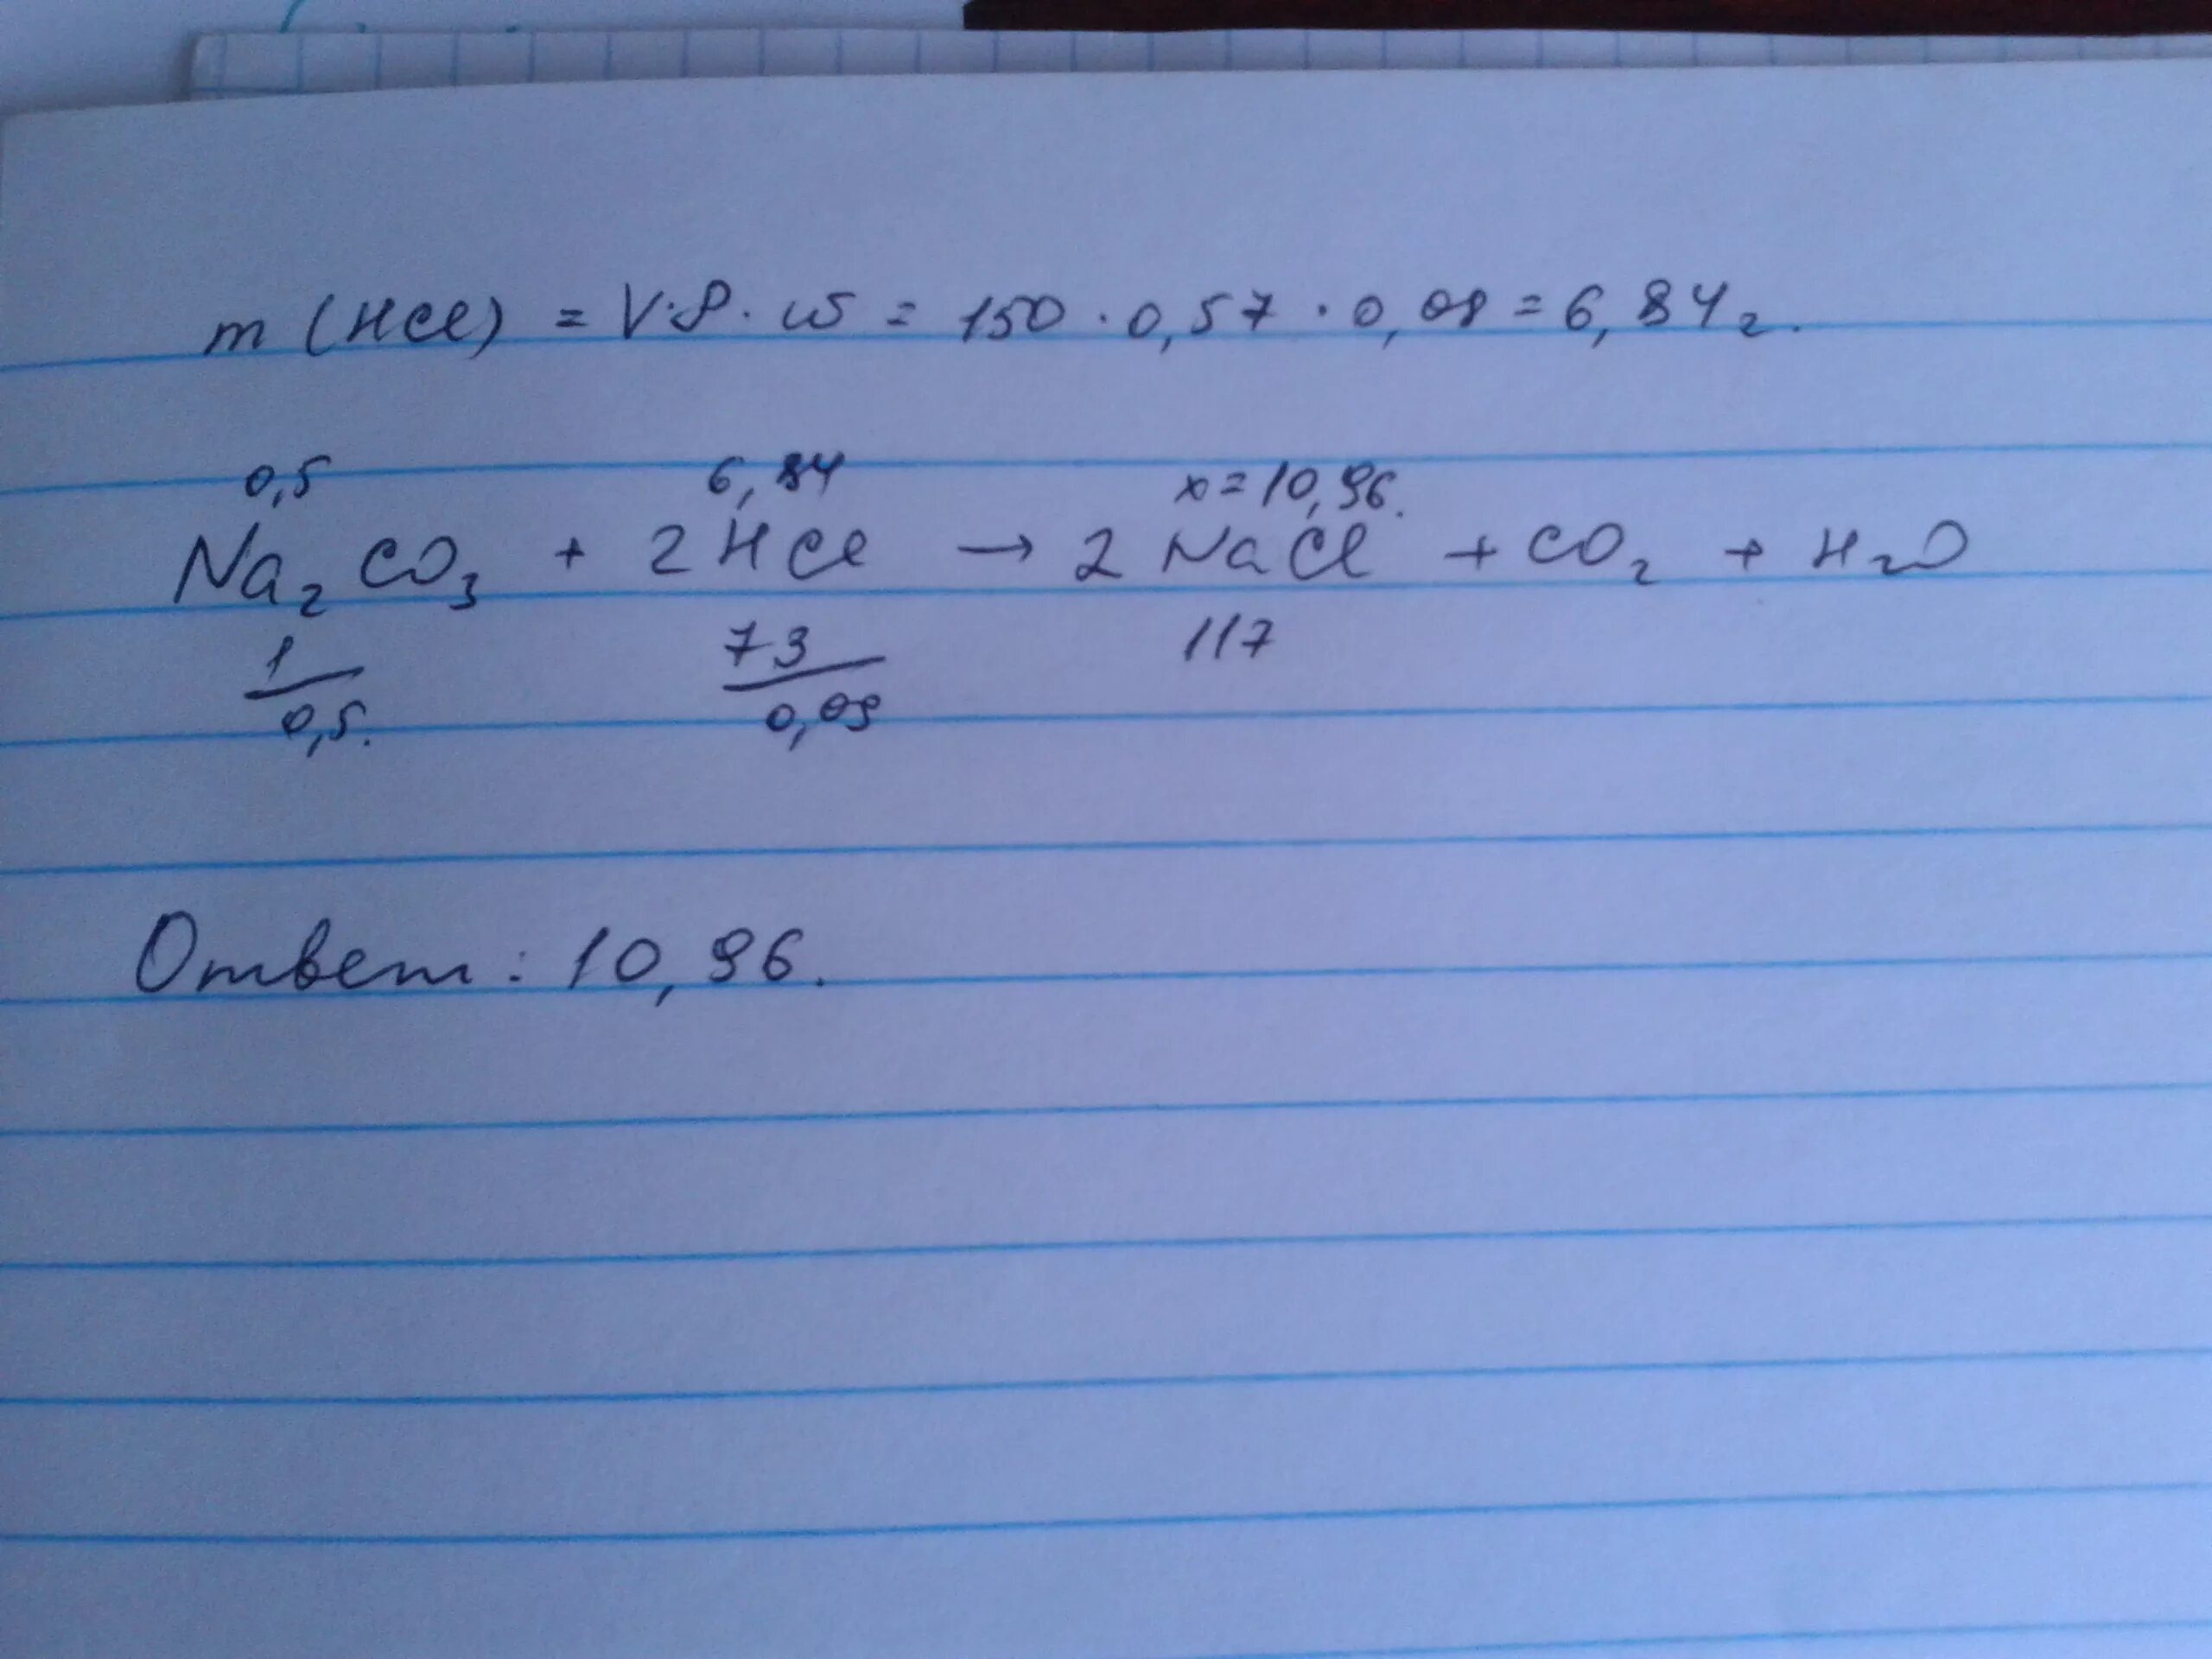 m (HCl) = V·ρ·ω = 150 · 0,57 · 0,08 = 6,84 г.
0,5 6,84 x = 10,96.
Na₂CO₃ + 2HCl → 2NaCl + CO₂ + H₂O
1 73 117
0,5. 0,09
Ответ: 10,96.